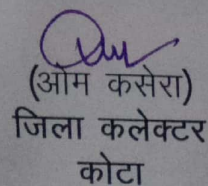 (ओम कसेरा)
जिला कलेक्टर
कोटा